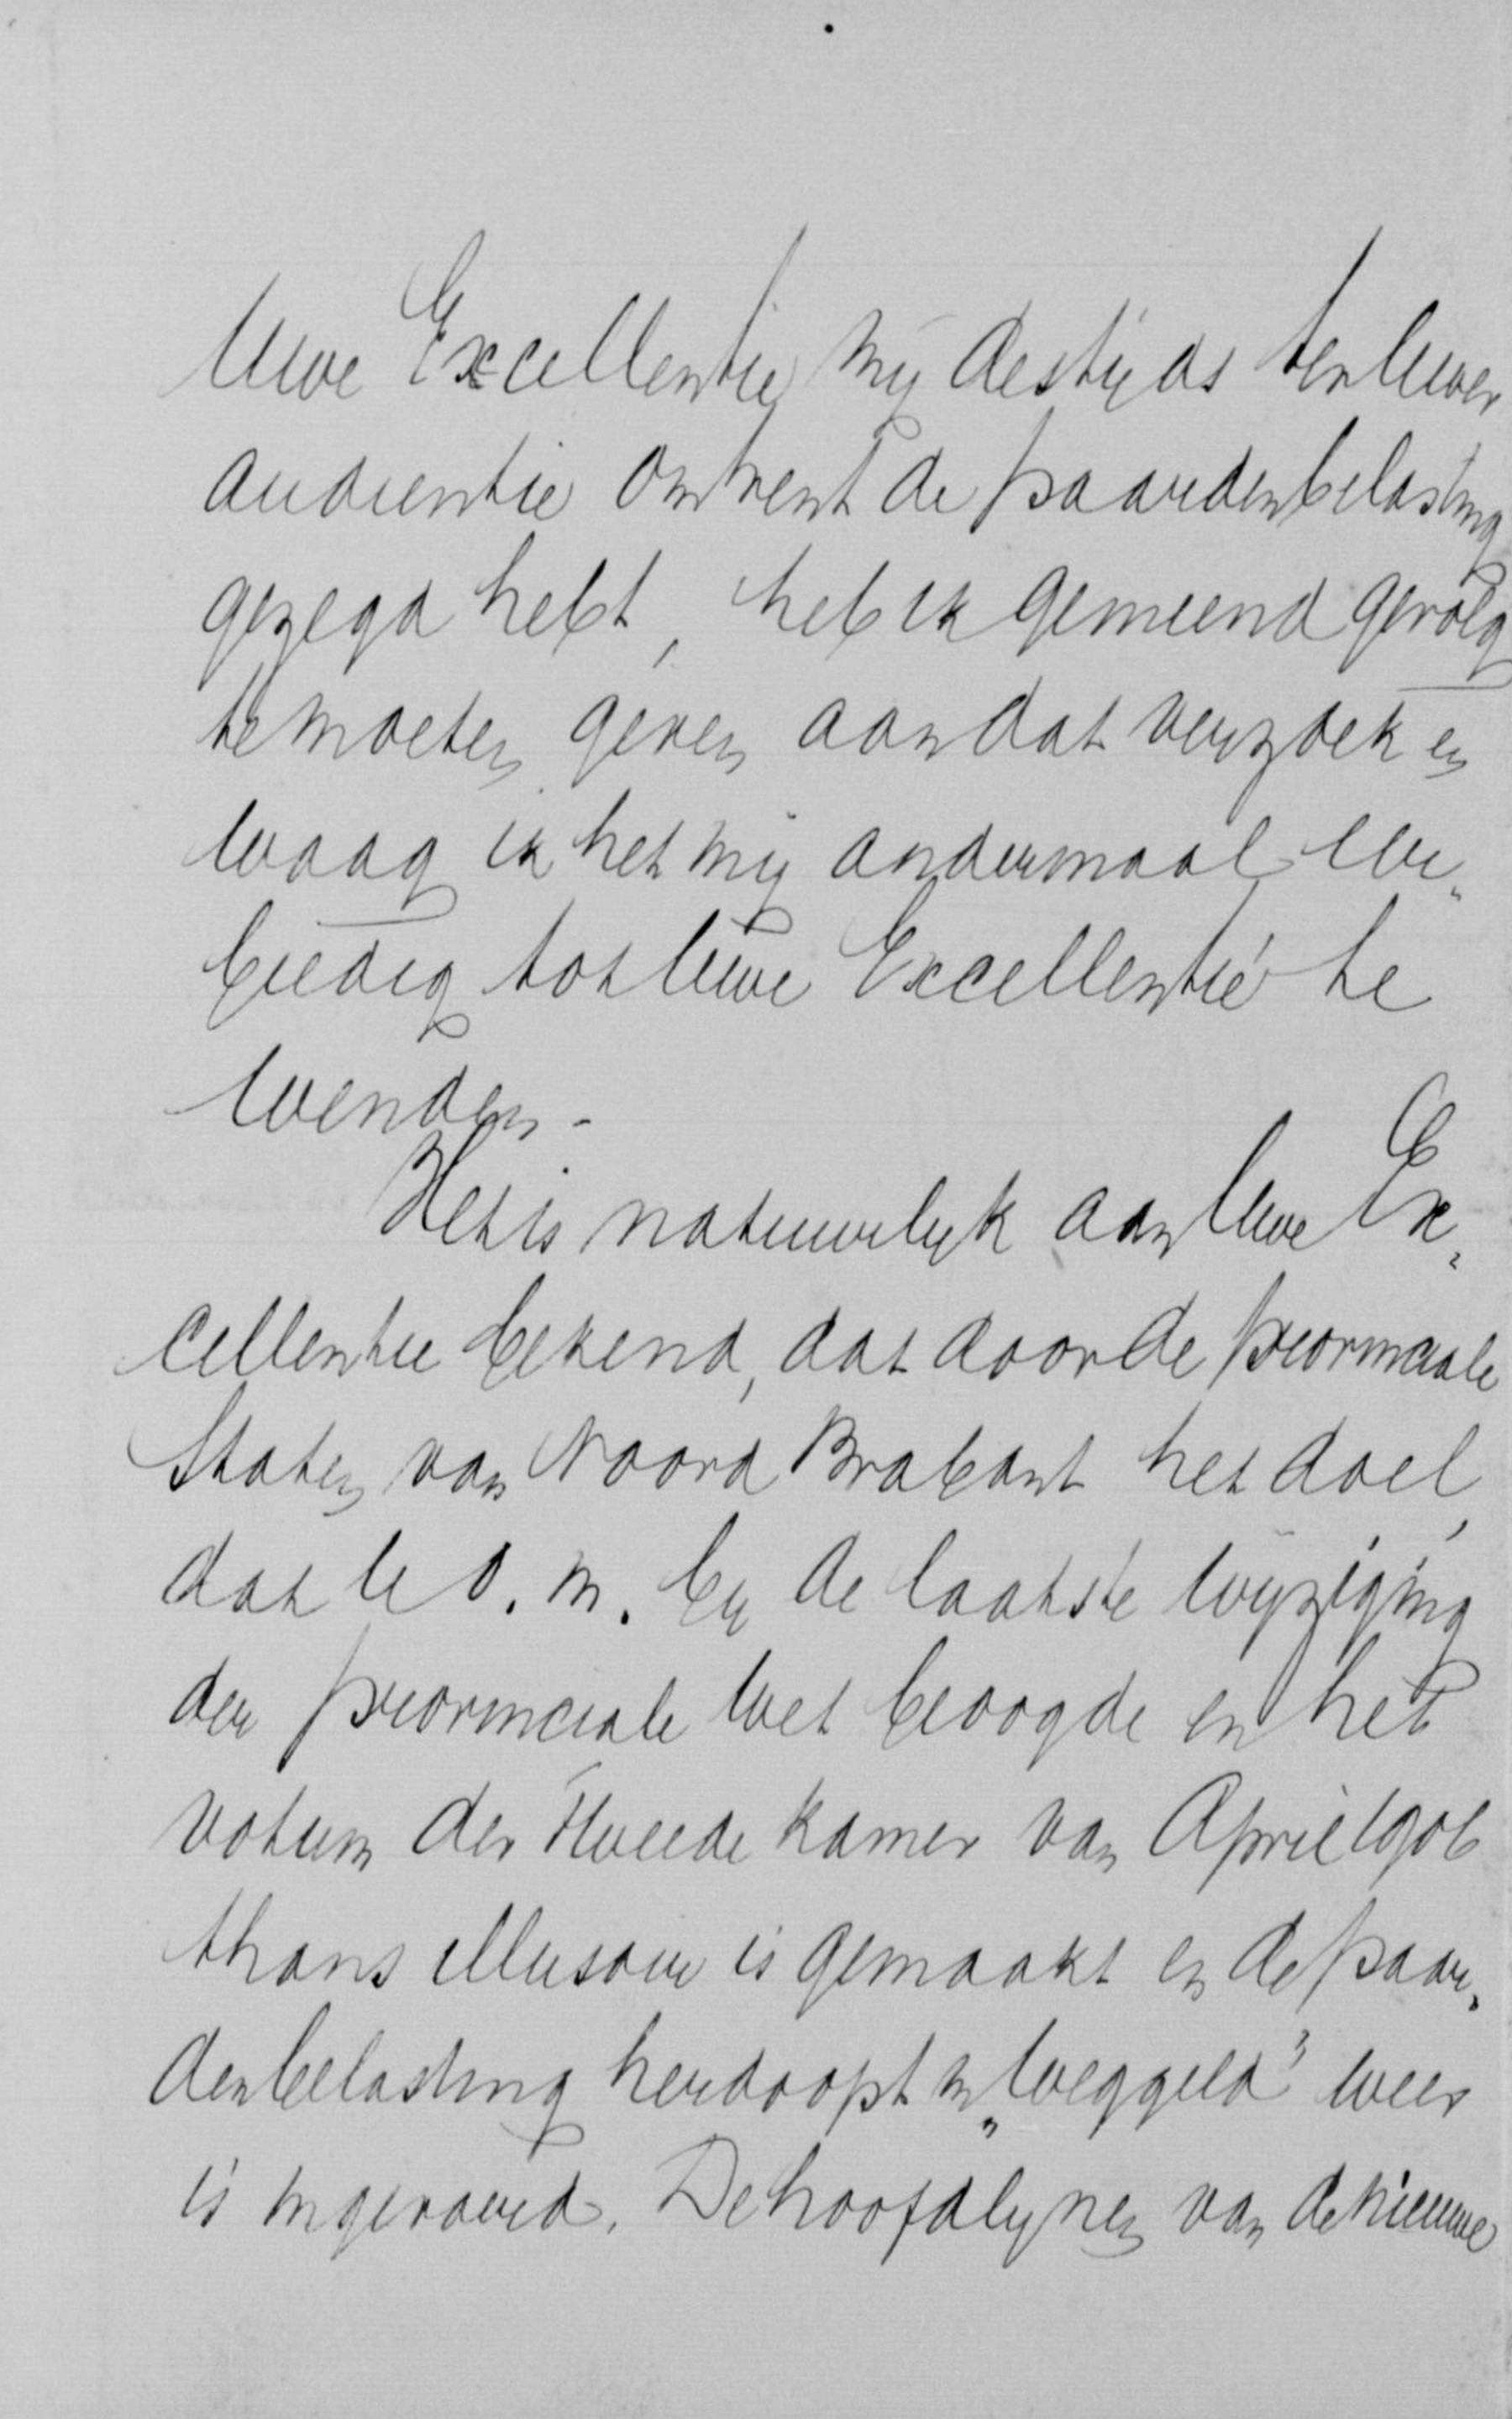 Uwe Excellentie mij destijds ter Uwer
audientie omtrent de paardenbelasting
gezegd hebt, heb ik gemeend gevolg
te moeten geven aan dat verzoek en
waag ik het mij andermaal eer„
biedig tot Uwe Excellentie te
wenden.
Het is natuurlijk aan Uwe Ex„
cellentie bekend, dat door de provinciale
Staten van Noord Brabant het doel,
dat U o. m. bij de laatste wijziging
der provinciale wet beoogde en het
votum der Tweede Kamer van April 1906
thans illusoir is gemaakt en de paar„
denbelasting herdoopt in „weggeld” weer
is ingevoerd. De hoofdlijnen van de nieuwe